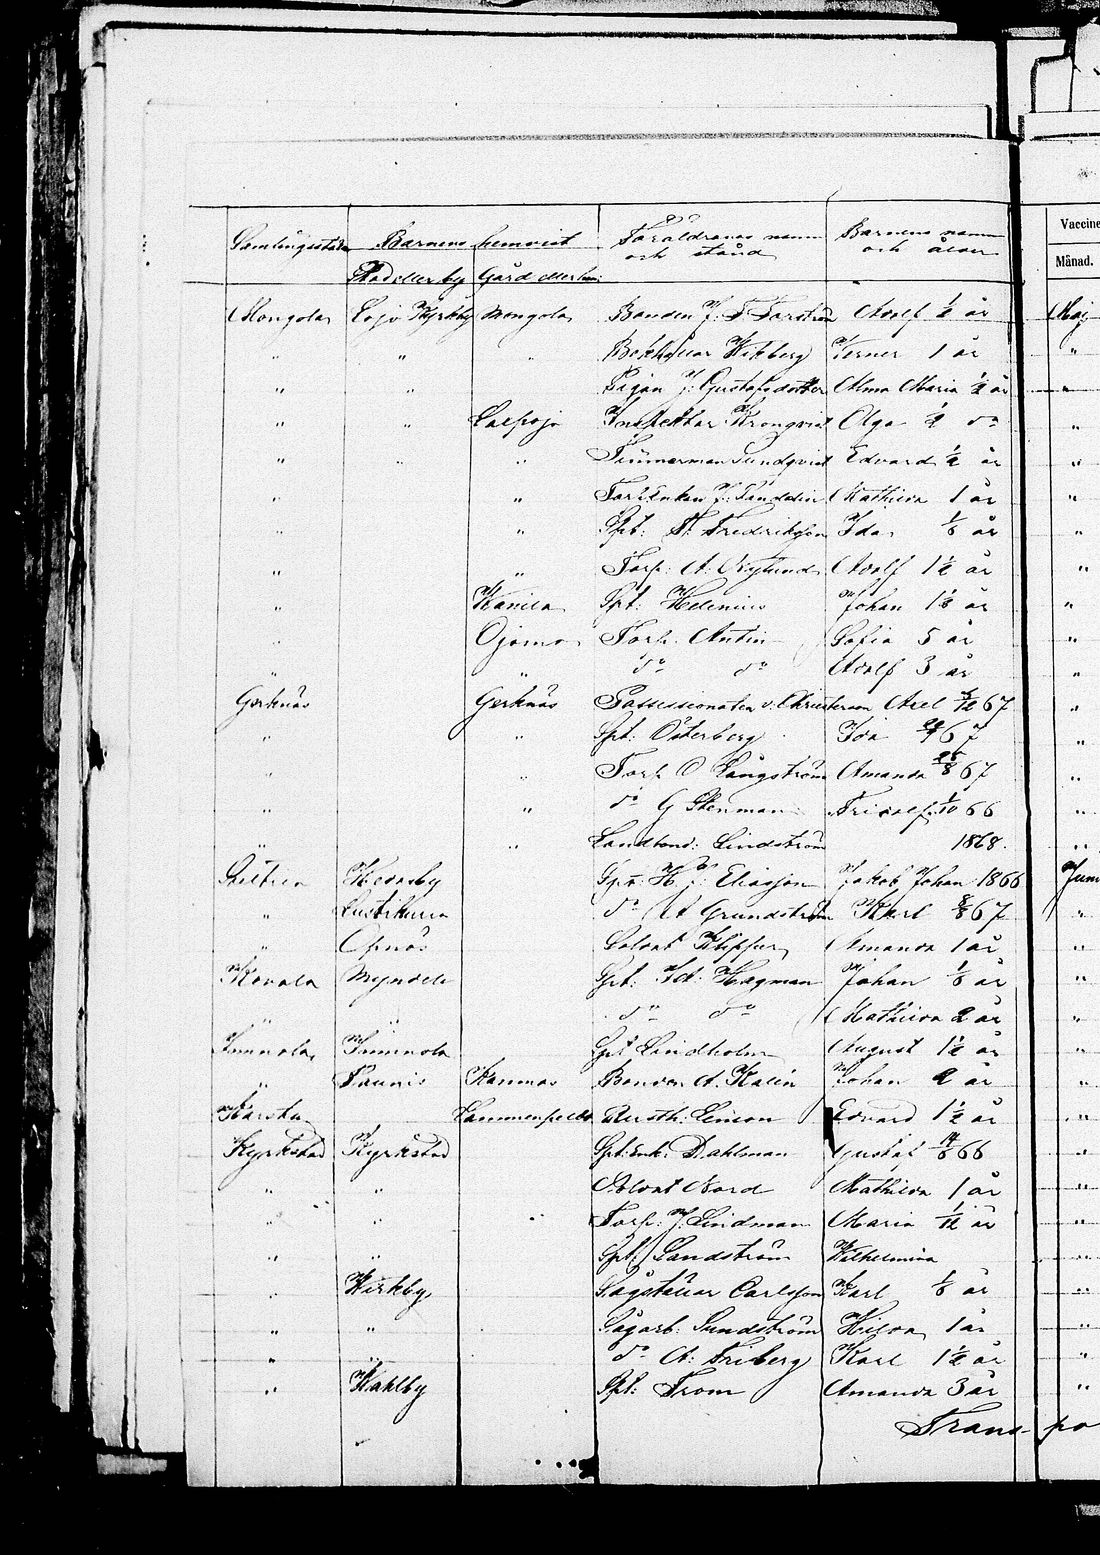 Samlingsställe Barnens hemvist Föräldrarnes namn och stånd Barnens namn och ålder Vaccine
Stad eller by Gård eller hem: Månad.
Mongola Lojo Kyrkby Mongola Bonden J. F. Forström Adolf ½ år Maj
" " " Bokhållar Wikberg Verner 1 år "
" " Pigan J: Gustafsdotter Alma Maria ½ år "
" " Laxpojo Inspektor Kronqvist Olga ½ do "
" " " Timmerman Sundqvist Edvard ½ år "
" " Torp:Enkan J: Sanddin Mathilda 1 år "
" " Spt: F: Fredriksson Ida år "
" " Torp: A: Nylund Adolf 1½ år "
" Kavila Spt: Helenius Johan år "
" Ojamo Torp. Antin Sofia 5 år "
" " do do Adolf 3 år "
Gerknäs Gerknäs Possessionaten v. Christerson Axel 67 "
" " Spt: Österberg Ida 67 "
" Torp O Långström Amanda 67 "
" do G Stenman Fridolf 1/10 66 "
" " Landbond: Lindström 1868. "
Heinsby Spt: H J: Eliasson Jakob Johan 1866 Juni
" Lustikulla do A Grundström Karl 8/8 67 "
" Ornäs Soldat Klipfur Amanda 1 år "
Kovala Myndele Spt: Hagman Johan år "
" " do do Mathilda 2 år "
Immola Immola Spt Lindholm August 1½ år "
" Paunis Kannas Bonden A. Kalén Johan 2 år "
Karstu Lammenpelto Rusth: Simon Edvard 1½ år "
Kyrkstad Kyrkstad Spt:enk: Dahlman Gustaf 66 "
" " Soldat Nord Mathilda 1 år "
" " Torp: J. Lindman Maria 1/12 år "
" " Spt: Sandström Wilhelmina "
" Kirkby Sågställar Carlsson Karl år "
" " Sågarb: Sundström Hilda 1 år "
" " do A: Friberg Karl 1½ år "
" Kahlby Spt: From Amanda 3 år "
Trans- po